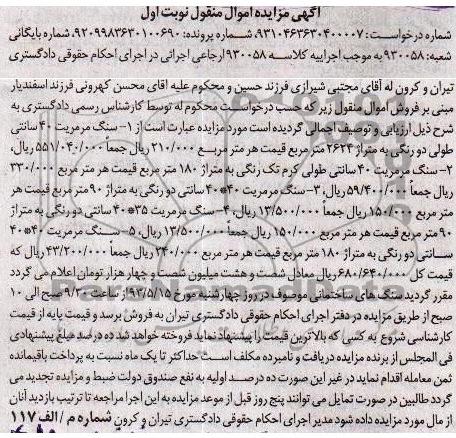 آگهی مزایده اموال منقول نوبت اول
شماره درخواست: ۹۳۱۰۴۶۳۶۳۰۴۰۰۰۰۷، شماره پرونده: ۹۲۰۹۹۸۳۶۳۰۱۰۰۶۹۰، شماره بایگانی
شعبه: ۹۳۰۰۵۸ به موجب اجراییه کلاسه ۹۳۰۰۵۸ ارجاعی اجرائی در اجرای احکام حقوقی دادگستری
تیران و کرون له آقای مجتبی شیرازی فرزند حسین و محکوم علیه آقای محسن کهرونی فرزند اسفندیار
مبنی بر فروش اموال منقول زیر که حسب درخواست محکوم له توسط کارشناس رسمی دادگستری به
شرح ذیل ارزیابی و توصیف اجمالی گردیده است مورد مزایده عبارت است از ۱- سنگ مرمریت ۴۰ سانتی
طولی دو رنگی به متراژ ۲۶۲۴ متر مربع قیمت هر متر مربع ۲۱۰/۰۰۰ ریال جمعاً ۵۵۱/۰۴۰/۰۰۰ ریال،
۲- سنگ مرمریت ۴۰ سانتی طولی کرم تک رنگی به متراژ ۱۸۰ متر مربع قیمت هر متر مربع ۳۳۰/۰۰۰
ریال جمعاً ۵۹/۴۰۰/۰۰۰ ریال، ۳- سنگ مرمریت ۴۰*۴۰ سانتی دو رنگی به متراژ ۹۰ متر مربع قیمت هر
متر مربع ۱۵۰/۰۰۰ ریال جمعاً ۱۳/۵۰۰/۰۰۰ ریال، ۴- سنگ مرمریت ۳۵*۴۰ سانتی دو رنگی به متراژ
۹۰ متر مربع قیمت هر متر مربع ۱۵۰/۰۰۰ ریال جمعاً ۱۳/۵۰۰/۰۰۰ ریال، ۵- سنگ مرمریت ۴۰*۴۰
سانتی دو رنگی به متراژ ۱۸۰ متر مربع قیمت هر متر مربع ۲۴۰/۰۰۰ ریال جمعاً ۴۳/۲۰۰/۰۰۰ ریال که
قیمت کل ۶۸۰/۶۴۰/۰۰۰ ریال معادل شصت و هشت میلیون شصت و چهار هزار تومان اعلام می گردد
مقرر گردید سنگ های ساختمانی موصوف در روز چهارشنبه مورخ ۹۳/۵/۱۵ از ساعت ۹/۳۰ صبح الی ۱۰
صبح از طریق مزایده در دفتر اجرای احکام حقوقی دادگستری تیران به فروش برسد و قیمت پایه از قیمت
کارشناسی شروع به کسی که بالاترین قیمت را پیشنهاد نماید فروخته خواهد شد ده درصد مبلغ پیشنهادی
فی المجلس از برنده مزایده دریافت و نامبرده مکلف است حداکثر تا یک ماه نسبت به پرداخت باقیمانده
ثمن معامله اقدام نماید در غیر این صورت ده درصد اولیه به نفع صندوق دولت ضبط و مزایده تجدید می
گردد طالبین در صورت تمایل می توانند پنج روز قبل از موعد مزایده به این اجرا مراجعه تا ترتیب بازدید آنان
از مال مورد مزایده داده شود مدیر اجرای احکام حقوقی دادگستری تیران و کرون شماره م / الف ۱۱۷